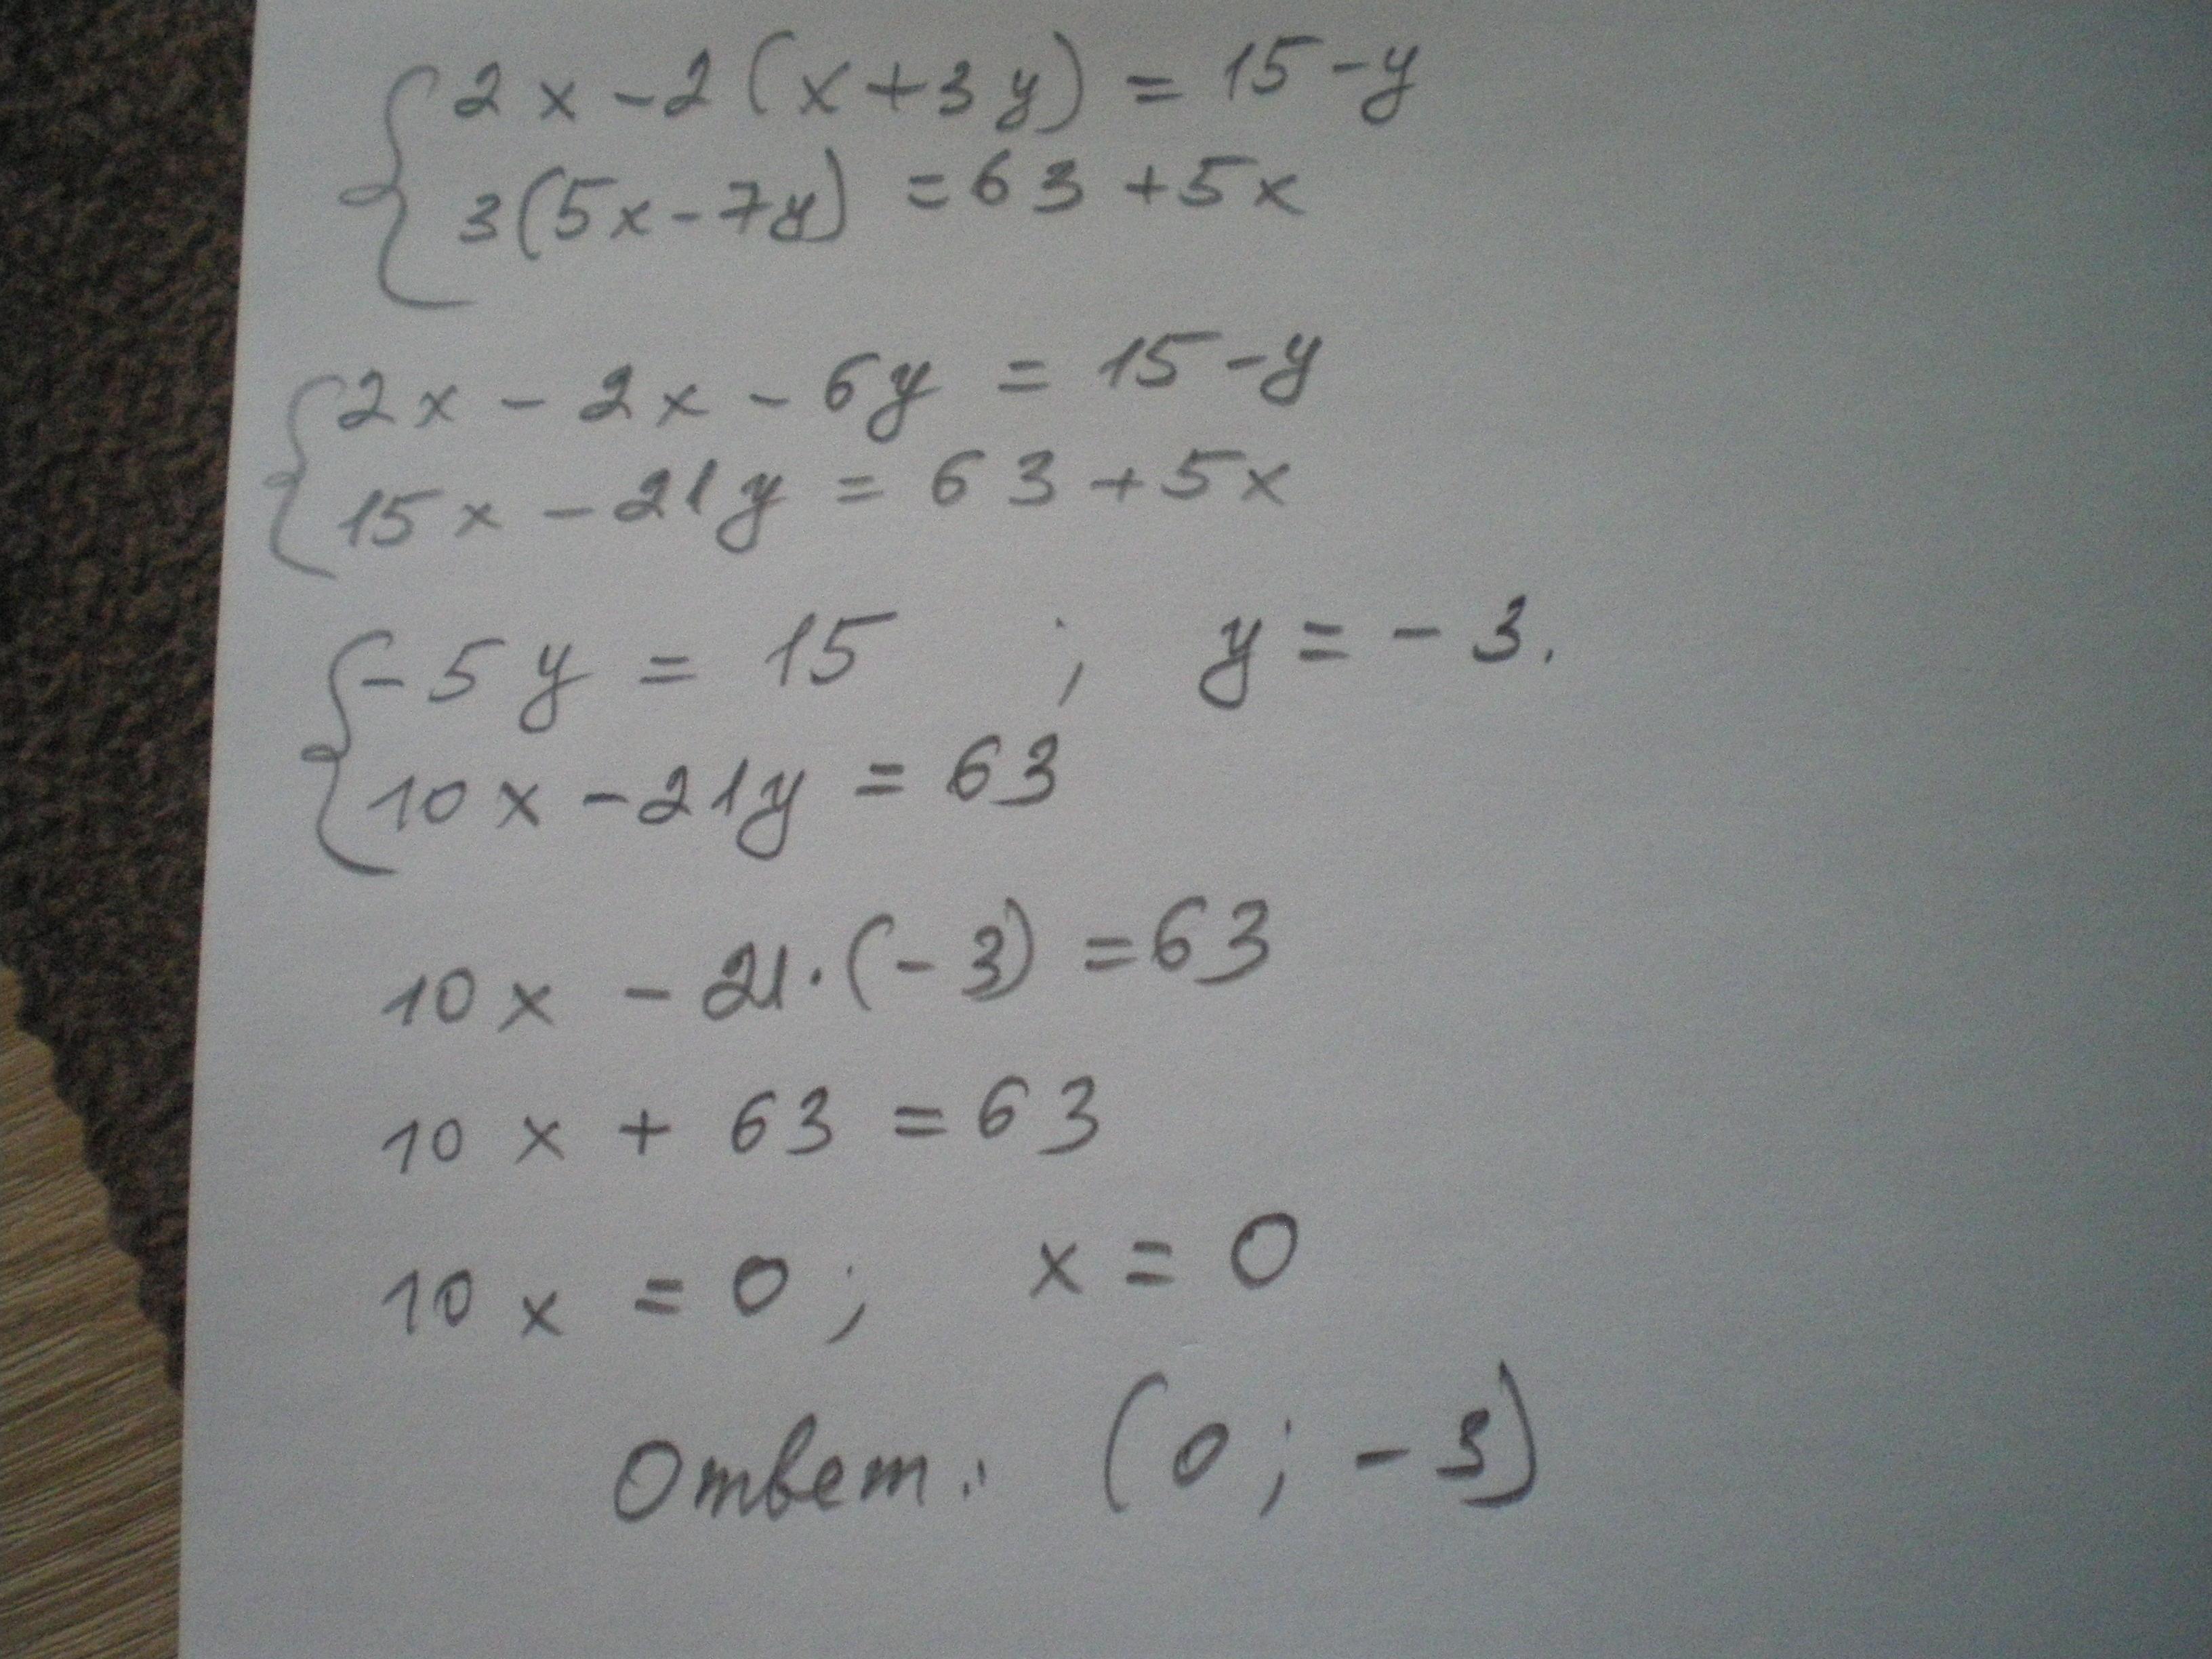 {2x - 2(x + 3y) = 15 - y
3(5x - 7y) = 63 + 5x
{2x - 2x - 6y = 15 - y
15x - 21y = 63 + 5x
{-5y = 15 ; y = -3.
10x - 21y = 63
10x - 21·(-3) = 63
10x + 63 = 63
10x = 0; x = 0
Ответ: (0; -3)